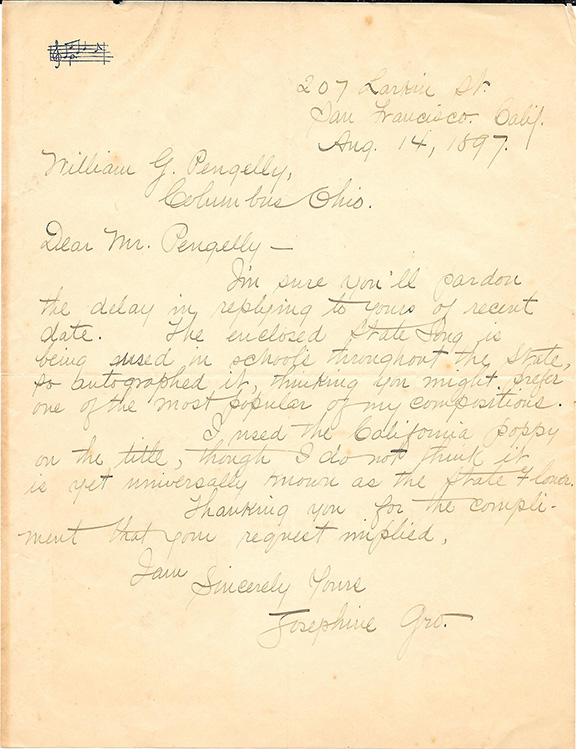 207 Larkin St.
San Francisco. Calif.
Aug. 14, 1897.
William G. Pengelly,
Columbus Ohio.
Dear Mr. Pengelly —
I'm sure you'll pardon
the delay in replying to yours of recent
date. The enclosed State Song is
being used in schools throughout the State,
so autographed it, thinking you might prefer
one of the most popular of my compositions.
I used the California poppy
on the title, though I do not think it
is yet universally known as the State Flower.
Thanking you for the compli-
ment that your request implied,
I am
Sincerely Yours
Josephine Gro.